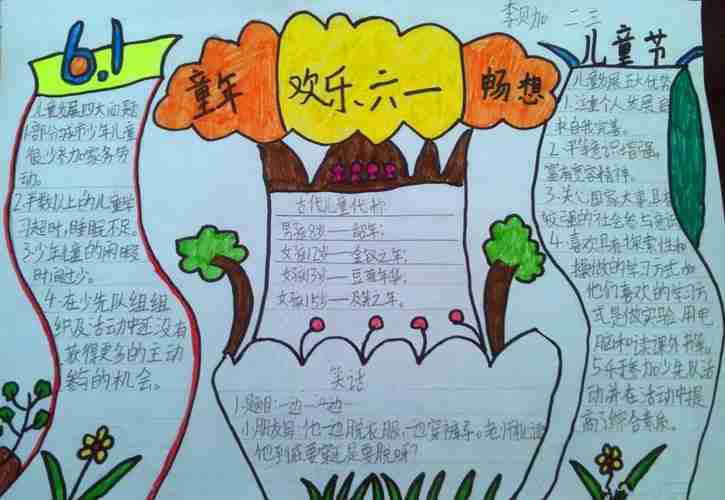 李贝加 二三
6.1
童年
欢乐六一
畅想
儿童节
儿童发展四大问题
1.部分城市少年儿童
很少参加家务劳
动。
2.半数以上的儿童学
习超时,睡眠不足。
3.少年儿童的闲暇
时间过少。
4.在少先队组组
织及活动中还没有
获得更多的主动
参与的机会。
古代儿童代称
男孩8岁——龆年;
女孩12岁——金钗之年;
女孩13岁——豆蔻年华;
女孩15岁——及笄之年。
笑话
1.题目:一边一边
小朋友写:他一边脱衣服,一边穿裤子。
他到底要穿还是要脱呀?
儿童发展五大优势
1.注重个人发展
我完善。
2.平等意识增强。
富有宽容精神。
3.关心国家大事具
较强的社会参与
4.喜欢具有探索性和
操做的学习方式,如
他们喜欢的学习方
式是做实验,用电
脑和读课外书等。
5.参加少年队活
动并在活动中提
高了综合素质。